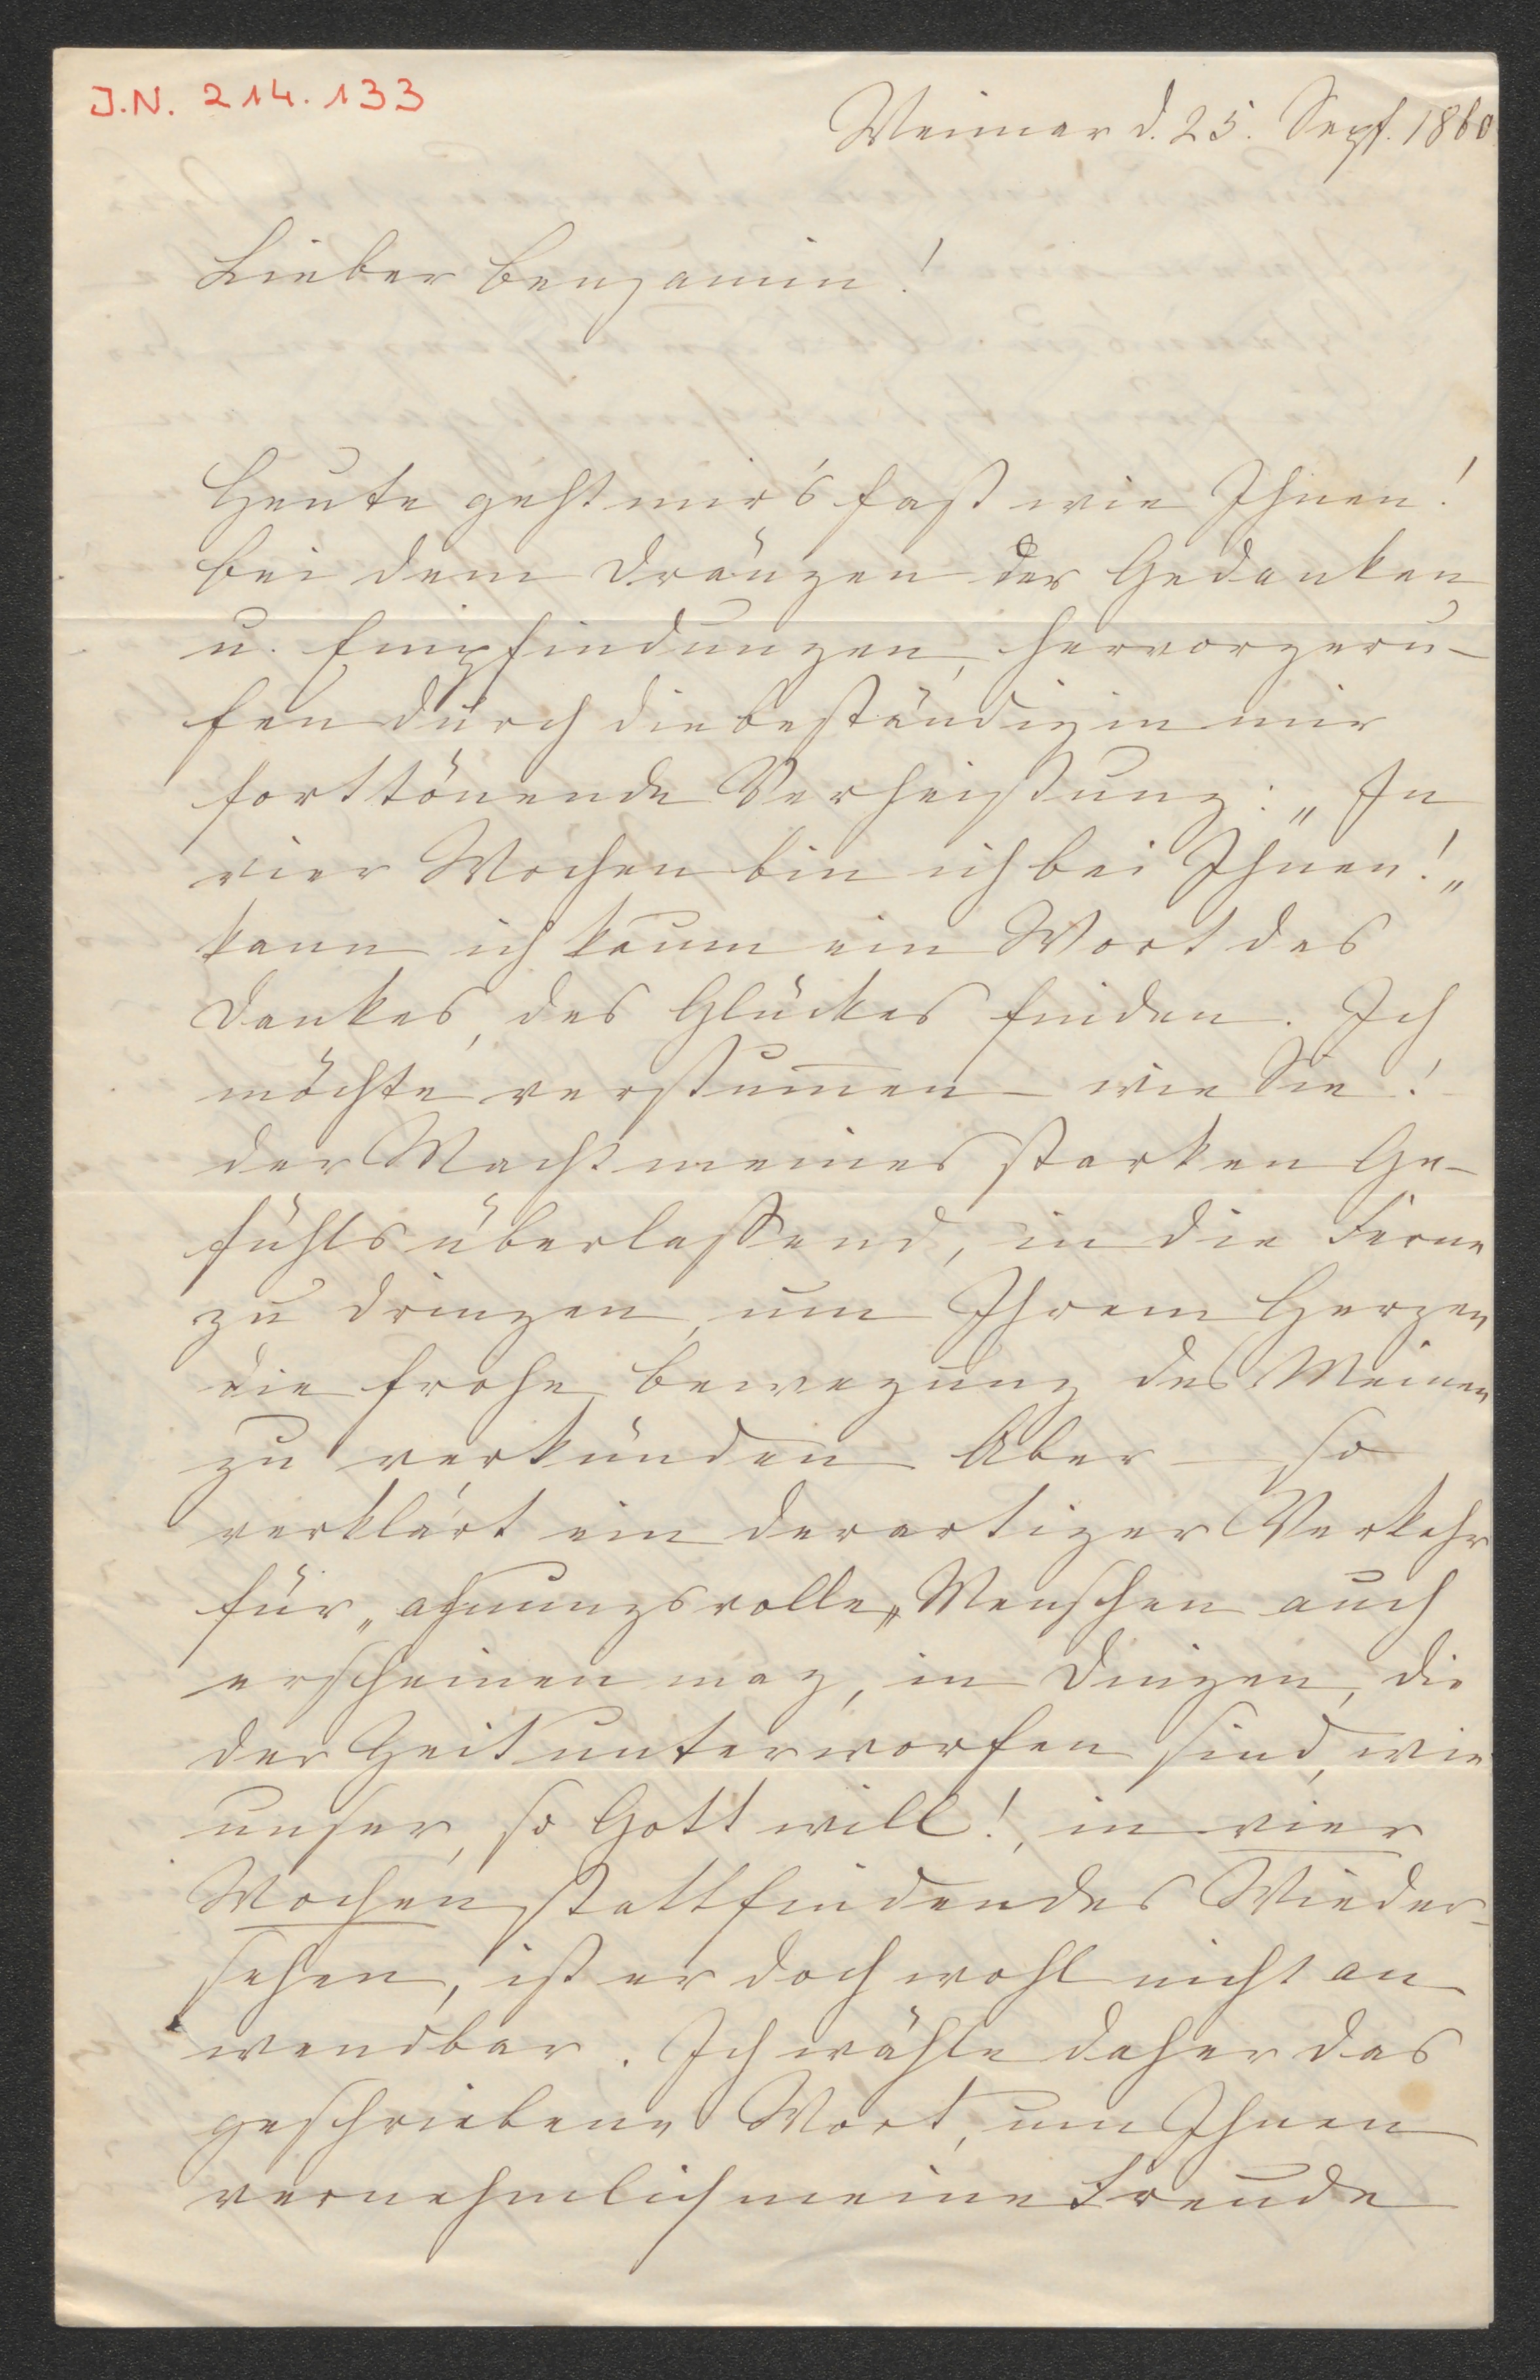 J.N. 214.133
Weimar d. 25. Sept. 1860
Lieber Benjamin!
Heute geht mir's fast wie Ihnen!
Bei dem Drängen der Gedanken
u. Empfindungen, hervorgeru-
fen durch die beständig in mir
forttönende Verheißung: „In
vier Wochen bin ich bei Ihnen!„
kann ich kaum ein Wort des
Dankes, des Glückes finden. Ich
möchte verstum̄en – wie Sie!
der Macht meines starken Ge-
fühls überlassend, in die Ferne
zu dringen, um Ihrem Herzen
die frohe Bewegung des Meinen
zu verkünden. Aber – so
verklärt ein derartiger Verkehr
für „ahnungsvolle„ Menschen auch
erscheinen mag, in Dingen, die
der Zeit unterworfen sind, wie
unser, so Gott will!, in vier
Wochen stattfindendes Wieder-
sehen, ist er doch wohl nicht an
wendbar. Ich wähle daher das
geschriebene Wort, um Ihnen
vernehmlich meine Freude